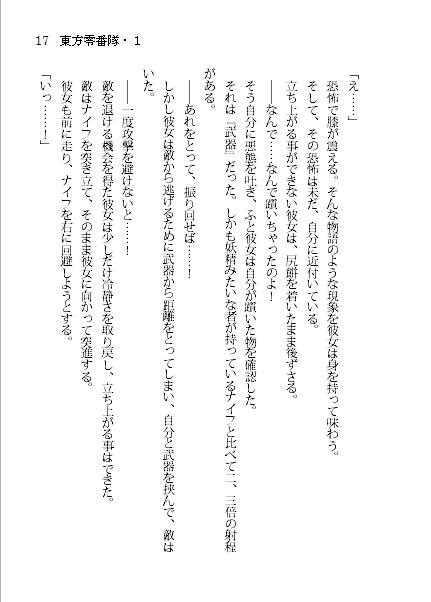 17 東方零番隊・1
「え……」
恐怖で膝が震える。そんな物語のような現象を彼女は身を持って味わう。
そして、その恐怖は未だ、自分に近付いている。
立ち上がる事ができない彼女は、尻餅を着いたまま後ずさる。
――なんで……なんで躓いちゃったのよ！
そう自分に悪態を吐き、ふと彼女は自分が躓いた物を確認した。
それは『武器』だった。しかも妖精みたいな者が持っているナイフと比べて二、三倍の射程
がある。
――あれをとって、振り回せば……！
しかし彼女は敵から逃げるために武器から距離をとってしまい、自分と武器を挟んで、敵は
いた。
――一度攻撃を避けないと……！
敵を退ける機会を得た彼女は少しだけ冷静さを取り戻し、立ち上がる事はできた。
敵はナイフを突き立て、そのまま彼女に向かって突進する。
彼女も前に走り、ナイフを右に回避しようとする。
「いっ……！」